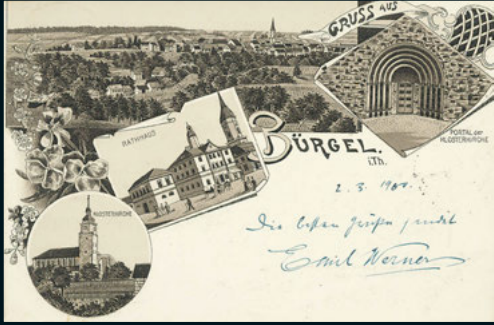 GRUSS AUS
BÜRGEL.
i.Th.
RATHHAUS
PORTAL der
KLOSTERKIRCHE
KLOSTERKIRCHE
2. 3. 1900.
Die besten Grüße sendet
Emil Werner